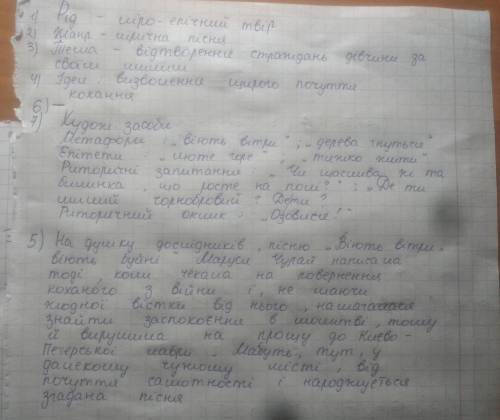 1) Рід - ліро-епічний твір
2) Жанр - лірична пісня
3) Тема - відтворення страждань дівчини за
своїм милим
4) Ідея : визволення щирого почуття
кохання
6) —
7) Худож. засоби
Метафори : „віють вітри" ; „дерева гнуться"
Епітети : „люте горе" , „тяжко жити"
Риторичні запитання : „Чи щаслива ж та
билинка, що росте на полі?" ; „Де ти
милий чорнобривий? Де ти?"
Риторичний оклик : „Озовися!"
5) На думку дослідників, пісню „Віють вітри,
віють буйні" Маруся Чурай написала
тоді, коли чекала на повернення
коханого з війни і, не маючи
жодної вістки від нього, намагалася
знайти заспокоєння в молитві, тому
й вирушила на прощу до Києво-
Печерської лаври. Мабуть, тут, у
далекому чужому місті, від
почуття самотності і народжується
згадана пісня